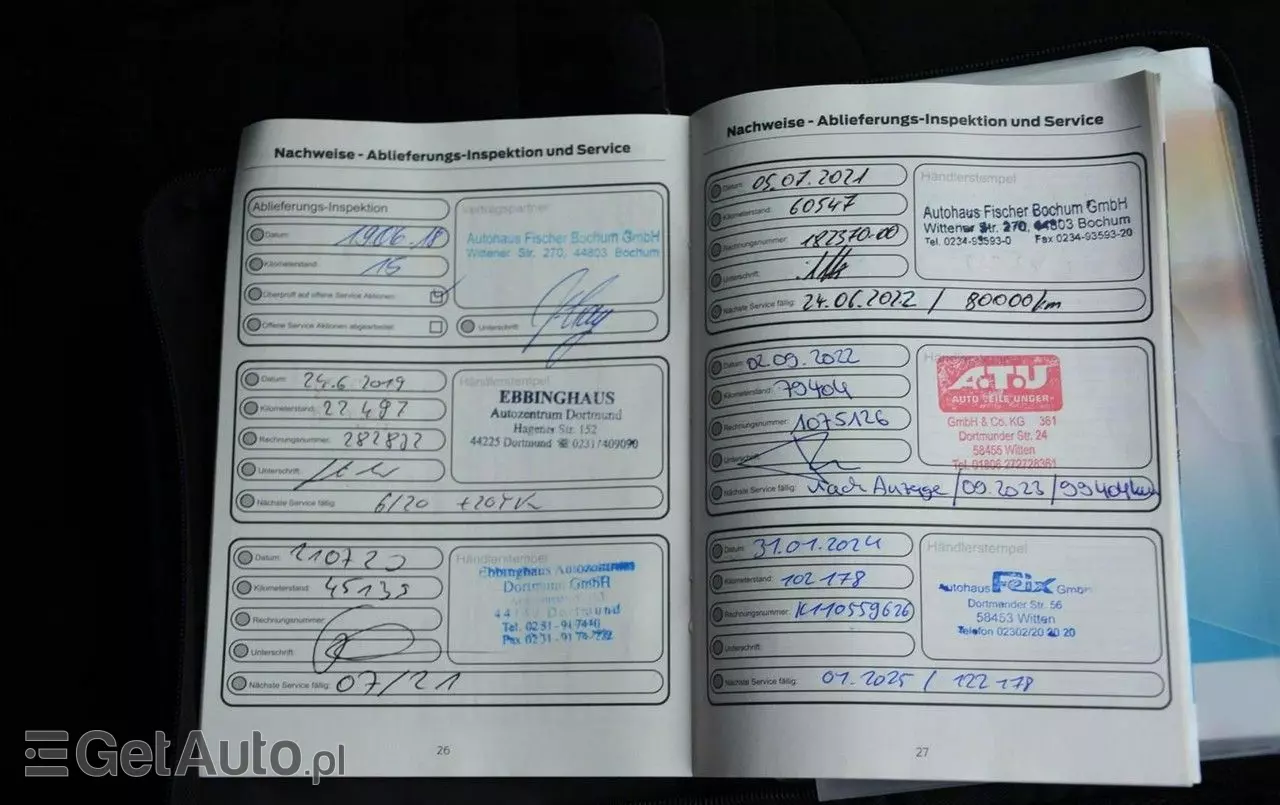 Nachweise - Ablieferungs-Inspektion und Service
Ablieferungs-Inspektion
Datum: 19.06.18
Kilometerstand: 15
Überprüft auf offene Service Aktionen:
Offene Service Aktionen abgearbeitet:
Vertragspartner
Autohaus Fischer Bochum GmbH
Wittener Str. 270, 44803 Bochum
Unterschrift:
Datum: 24.6.2019
Kilometerstand: 22.497
Rechnungsnummer:
Unterschrift:
Nächste Service fällig: 6/20
Händlerstempel
EBBINGHAUS
Autozentrum Dortmund
Hagener Str. 152
44225 Dortmund ☎ 0231/409090
Datum: 210720
Kilometerstand: 45139
Rechnungsnummer:
Unterschrift:
Nächste Service fällig: 07/21
Händlerstempel
Ebbinghaus Autozentrum
Dortmund GmbH
Dortmund
Tel. 0231-
Fax 0231-
26
Nachweise - Ablieferungs-Inspektion und Service
Datum: 05.07.2021
Kilometerstand: 60547
Rechnungsnummer: 187370-00
Unterschrift:
Nächste Service fällig: 24.06.2022 / 80000km
Händlerstempel
Autohaus Fischer Bochum GmbH
Wittener Str. 270, 44803 Bochum
Tel. 0234-93593-0 Fax 0234-93593-20
Datum: 02.09.2022
Kilometerstand: 79404
Rechnungsnummer: 1075126
Unterschrift:
Nächste Service fällig: nach Anzeige /09.2023/99404km
Händlerstempel
A.T.U
AUTO TEILE UNGER
GmbH & Co. KG 361
Dortmunder Str. 24
58455 Witten
Tel. 01806 272728361
Datum: 31.01.2024
Kilometerstand: 102 178
Rechnungsnummer: K110559626
Unterschrift:
Nächste Service fällig: 01.2025 / 122 178
Händlerstempel
Autohaus Feix GmbH
Dortmunder Str. 56
58453 Witten
Telefon 02302/20 20 20
27
GetAuto.pl